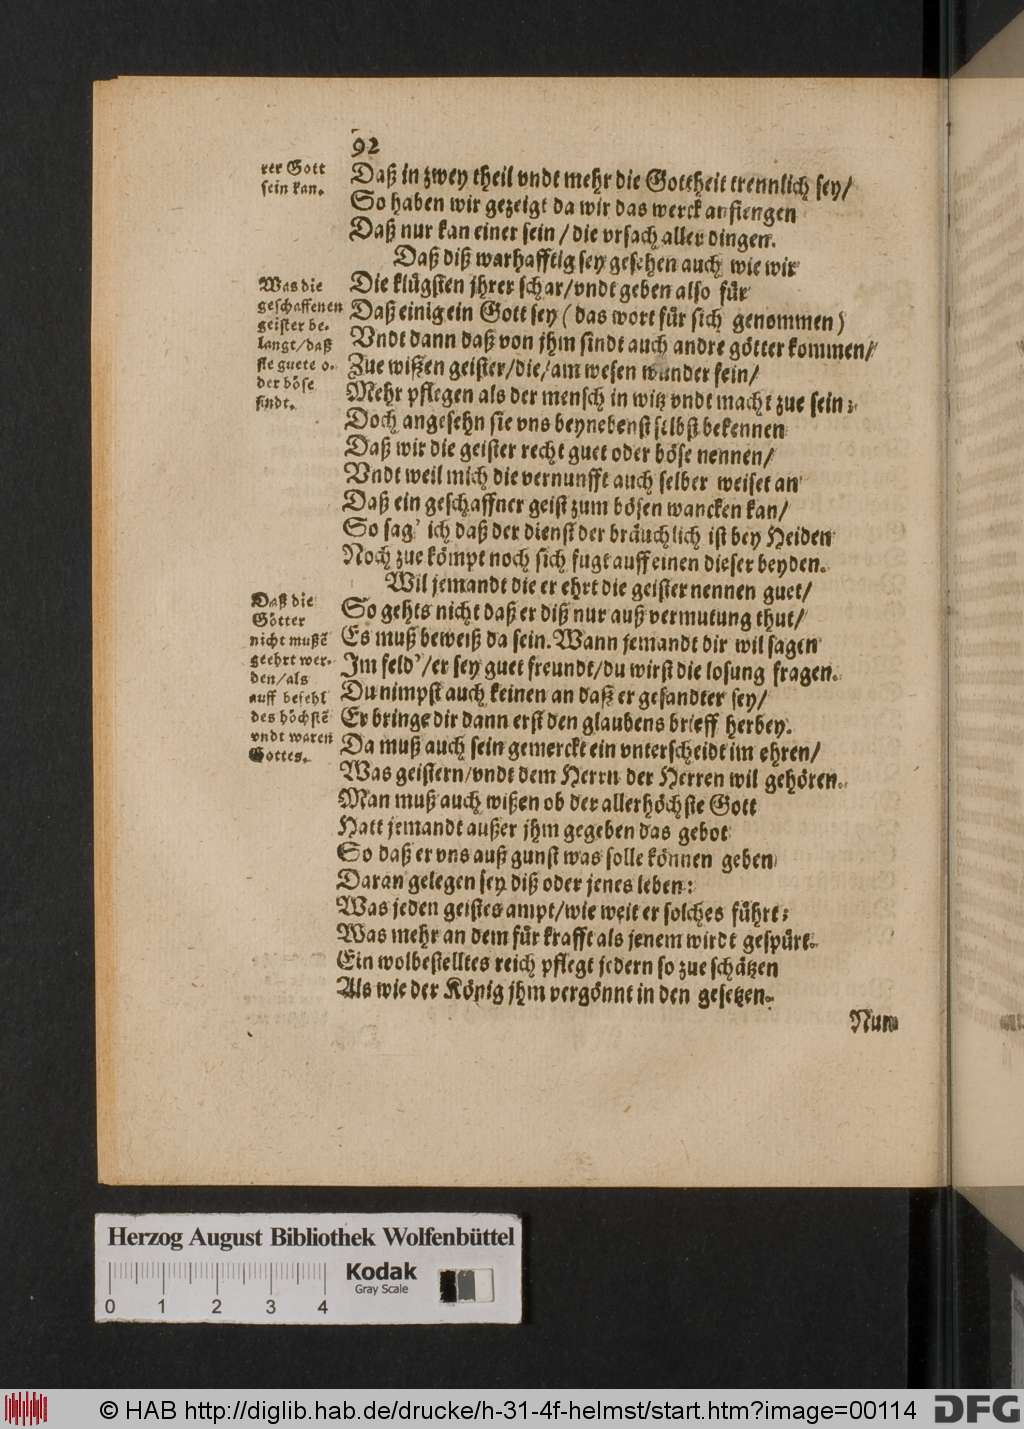 92
rer Gott
sein kan.
Daß in zwey theil vndt mehr die Gottheit trennlich sey/
So haben wir gezeigt da wir das werck anfiengen
Daß nur kan einer sein / die vrsach aller dingen.
Daß diß warhafftig sey gesehen auch wie wir
Was die
geschaffenen
geister be-
langt/daß
sie guete o-
der böse
sindt.
Die klügsten jhrer schar/vndt geben also für
Daß einig ein Gott sey ( das wort für sich genommen )
Vndt dann daß von jhm sindt auch andre götter kommen/
Zue wißen geister/die/am wesen wunder fein/
Mehr pflegen als der mensch in witz vndt macht zue sein;
Doch angesehn sie vns beynebenst selbst bekennen
Daß wir die geister recht guet oder böse nennen/
Vndt weil mich die vernunfft auch selber weiset an
Daß ein geschaffner geist zum bösen wancken kan/
So sag' ich daß der dienst der bräuchlich ist bey Heiden
Noch zue kömpt noch sich fugt auff einen dieser beyden.
Wil jemandt die er ehrt die geister nennen guet/
Daß die
Götter
nicht mußē
geehrt wer-
den/als
auff befehl
des höchstē
vndt waren
Gottes.
So gehts nicht daß er diß nur auß vermutung thut/
Es muß beweiß da sein. Wann jemandt dir wil sagen
Im feld'/er sey guet freundt/du wirst die losung fragen.
Du nimpst auch keinen an daß er gesandter sey/
Er bringe dir dann erst den glaubens brieff herbey.
Da muß auch sein gemerckt ein vnterscheidt im ehren/
Was geistern/vndt dem Herrn der Herren wil gehören.
Man muß auch wißen ob der allerhöchste Gott
Hatt jemandt außer jhm gegeben das gebot
So daß er vns auß gunst was solle können geben
Daran gelegen sey diß oder jenes leben:
Was jeden geistes ampt/wie weit er solches führt;
Was mehr an dem für krafft als jenem wirdt gespürt.
Ein wolbestelltes reich pflegt jedern so zue schätzen
Als wie der König jhm vergönnt in den gesetzen.
Nun
Herzog August Bibliothek Wolfenbüttel
Kodak
Gray Scale
0 1 2 3 4
© HAB http://diglib.hab.de/drucke/h-31-4f-helmst/start.htm?image=00114
DFG